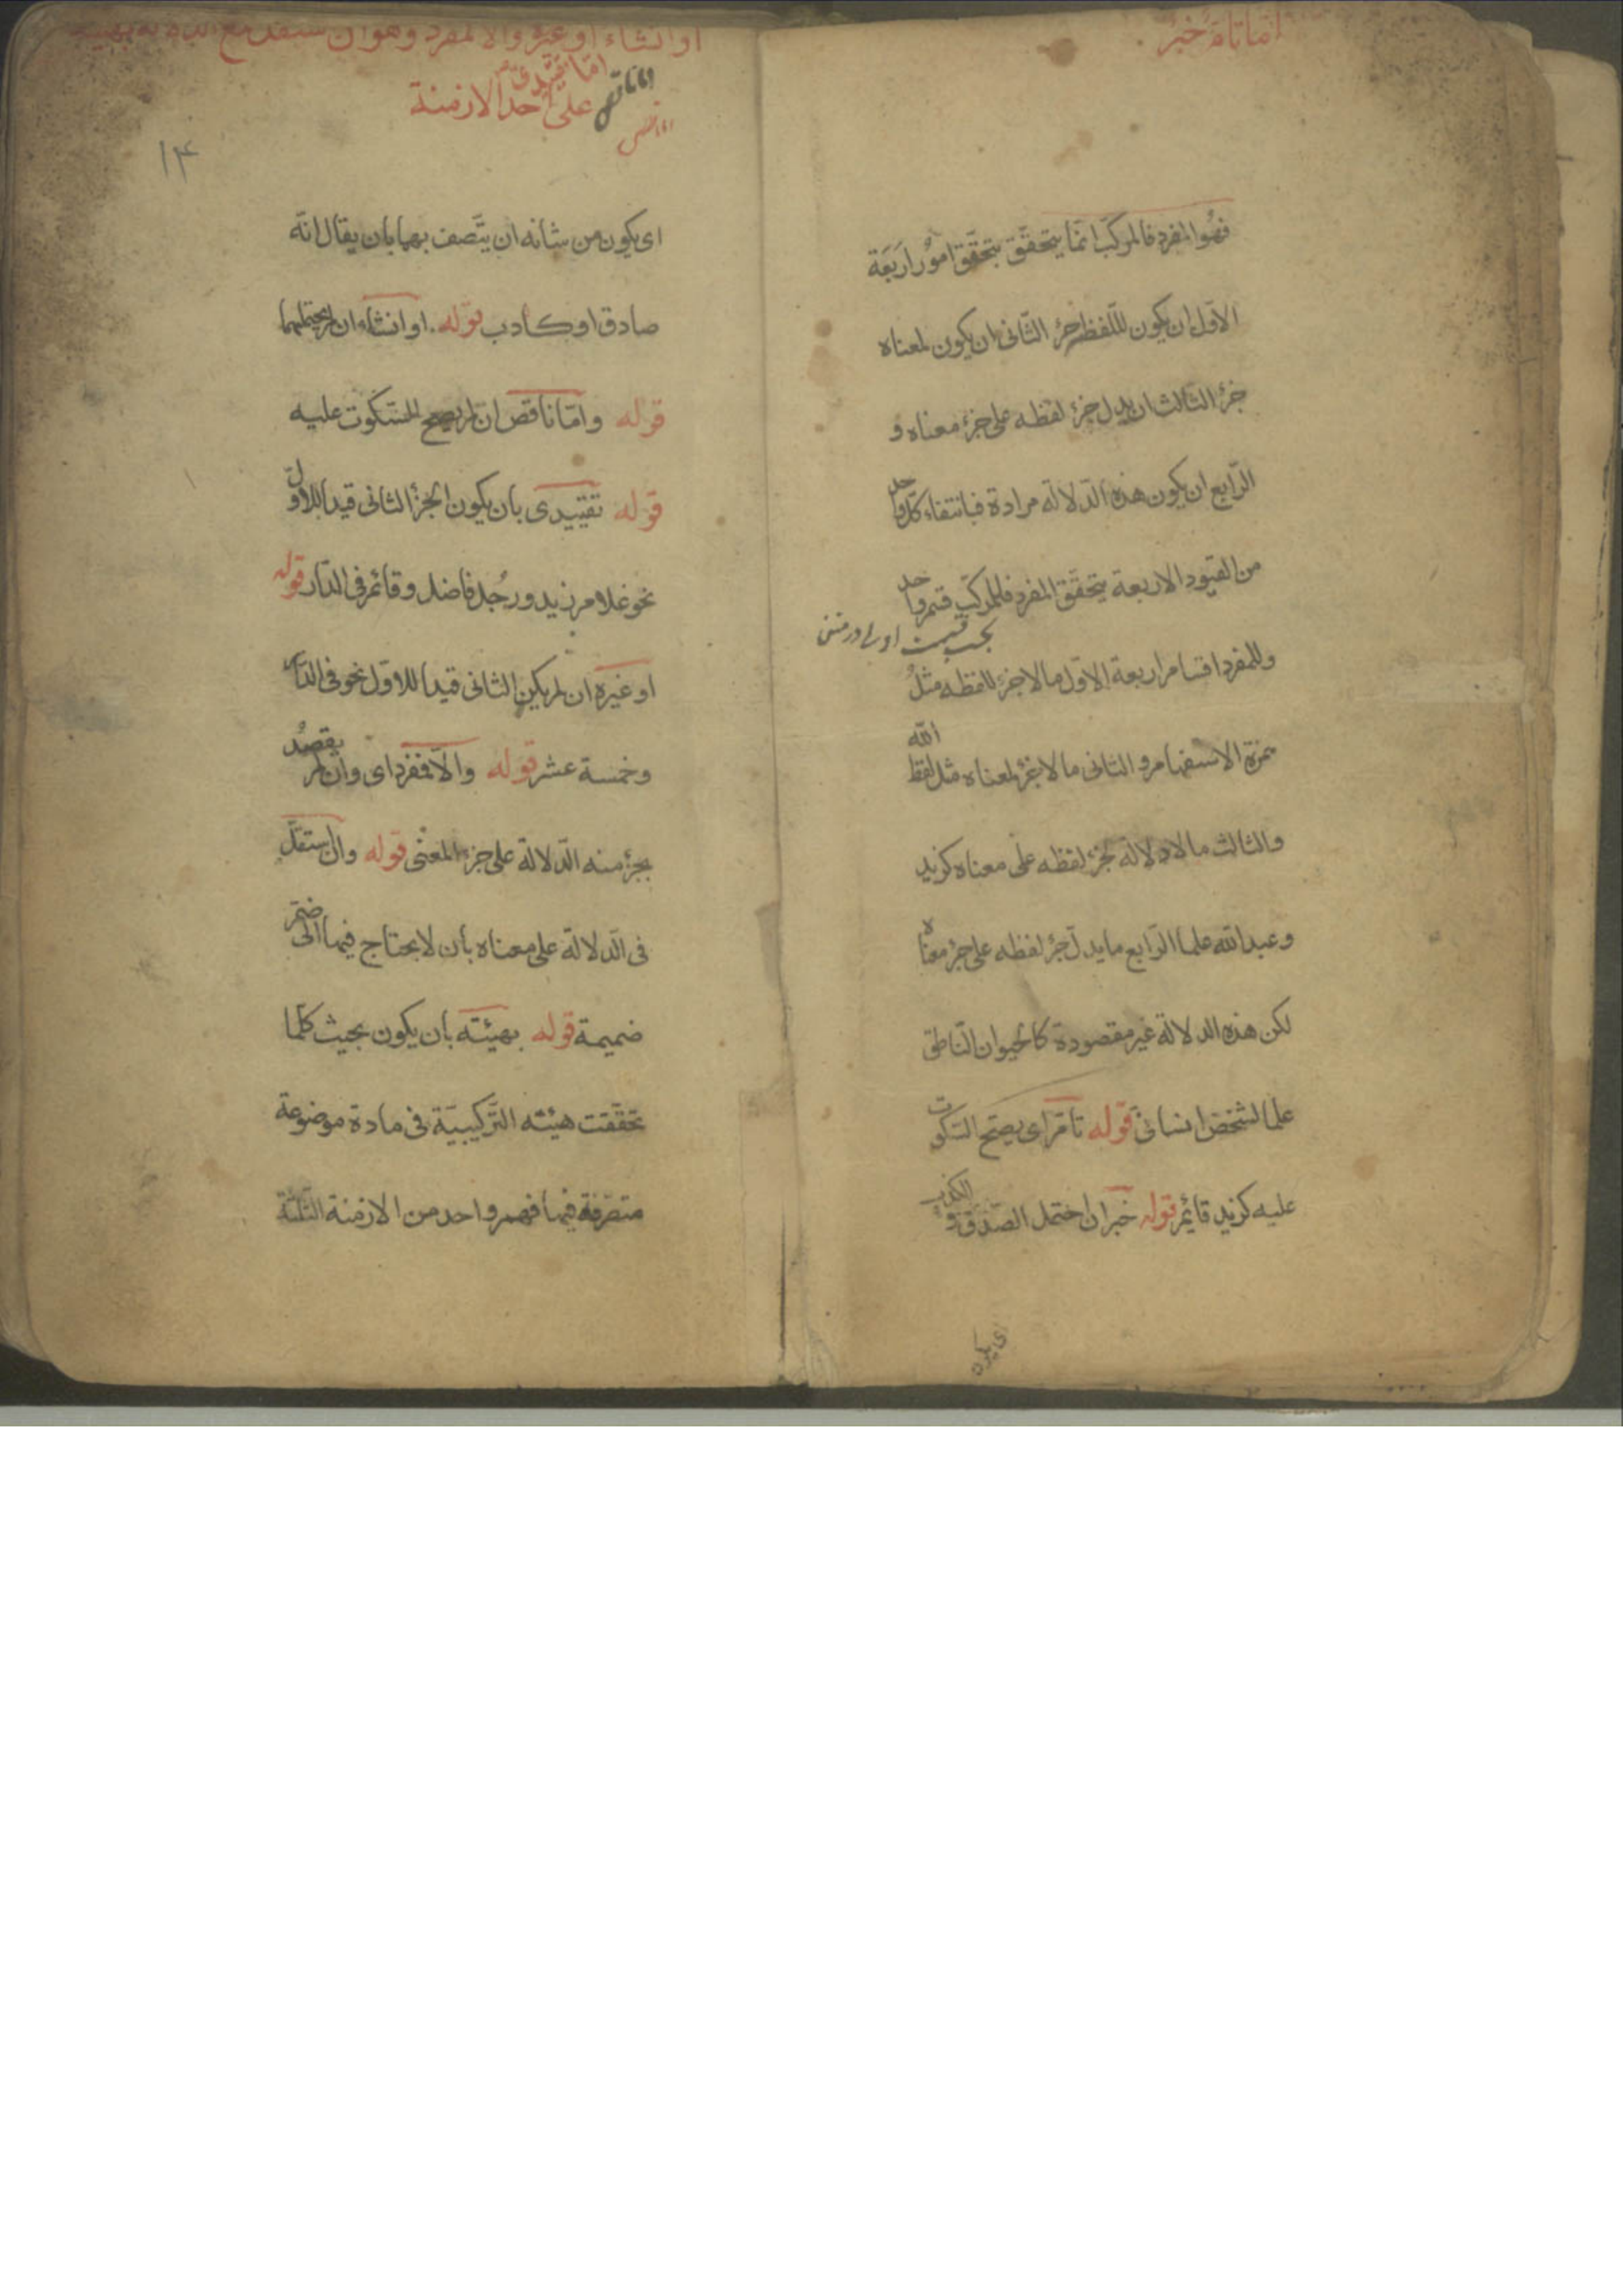 اما تام خبر
فهو المفرد فالمركب انما يتحقق بتحقق امور اربعة
الاول ان يكون للفظ جزء الثانى ان يكون لمعناه
جزء الثالث ان يدل جزء لفظه على جزء معناه و
الرابع ان يكون هذه الدلالة مرادة فبانتفاء كل واحد
من القيود الاربعة يتحقق المفرد فللمركب قسم واحد
وللمفرد اقسام اربعة الاول ما لا جزء للفظه مثل
همزة الاستفهام و الثانى ما لا جزء لمعناه مثل لفظ الله
والثالث ما لا دلالة لجزء لفظه على معناه كزيد
و عبد الله علما الرابع ما يدل جزء لفظه على جزء معناه
لكن هذه الدلالة غير مقصودة كالحيوان الناطق
علما لشخص انسانى قوله تام اى يصح السكوت
عليه كزيد قائم قوله خبر ان احتمل الصدق و الكذب
او انشاء او غيره والا لمفرد وهو ان ستقل مع الدلالة بهيئته
على احد الازمنة
اما ناقص
۱۴
اى يكون من شانه ان يتصف بهما بان يقال انه
صادق او كاذب قوله او انشاء ان لم يحتملهما
قوله واما ناقص ان لم يصح السكوت عليه
قوله تقييدى بان يكون الجزء الثانى قيدا للاول
نحو غلام زيد ورجل فاضل وقائم فى الدار قوله
او غيره ان لم يكن الثانى قيدا للاول نحو فى الدار
وخمسة عشر قوله والا فمفرد اى وان لم يقصد
بجزء منه الدلالة على جزء المعنى قوله وان ستقل
فى الدلالة على معناه بان لا يحتاج فيها الى ضم
ضميمة قوله بهيئته بان يكون بحيث كلما
تحققت هيئته التركيبية فى مادة موضوعة
متصرفة فيها فهم واحد من الازمنة الثلثة